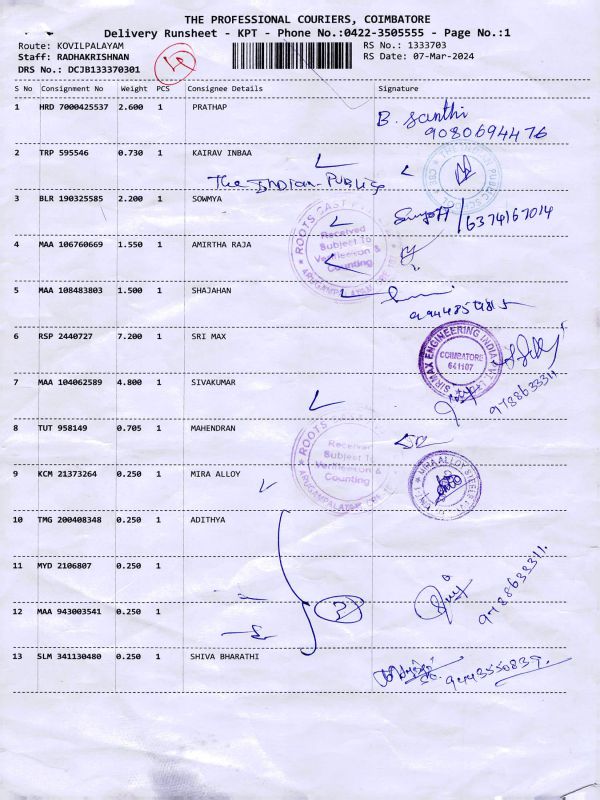 THE PROFESSIONAL COURIERS, COIMBATORE
Delivery Runsheet - KPT - Phone No.:0422-3505555 - Page No.:1
Route: KOVILPALAYAM RS No.: 1333703
Staff: RADHAKRISHNAN RS Date: 07-Mar-2024
DRS No.: DCJB133370301
S No Consignment No Weight PCS Consignee Details Signature
1 HRD 7000425537 2.600 1 PRATHAP
B. Santhi
9080694476
2 TRP 595546 0.730 1 KAIRAV INBAA
The INDIAN PUBLIC
3 BLR 190325585 2.200 1 SOWMYA
6374167014
ROOTS CAST
Received
Subject To
Verification &
Counting
4 MAA 106760669 1.550 1 AMIRTHA RAJA
5 MAA 108483803 1.500 1 SHAJAHAN
6 RSP 2440727 7.200 1 SRI MAX
SIRMAX ENGINEERING INDIA PVT LTD
COIMBATORE
641107
9788633311
7 MAA 104062589 4.800 1 SIVAKUMAR
8 TUT 958149 0.705 1 MAHENDRAN
ROOTS CAST
Received
Subject To
Verification &
Counting
9 KCM 21373264 0.250 1 MIRA ALLOY
MIRA ALLOY STEELS
10 TMG 200408348 0.250 1 ADITHYA
11 MYD 2106807 0.250 1
9788633311
12 MAA 943003541 0.250 1
13 SLM 341130480 0.250 1 SHIVA BHARATHI
9443550839